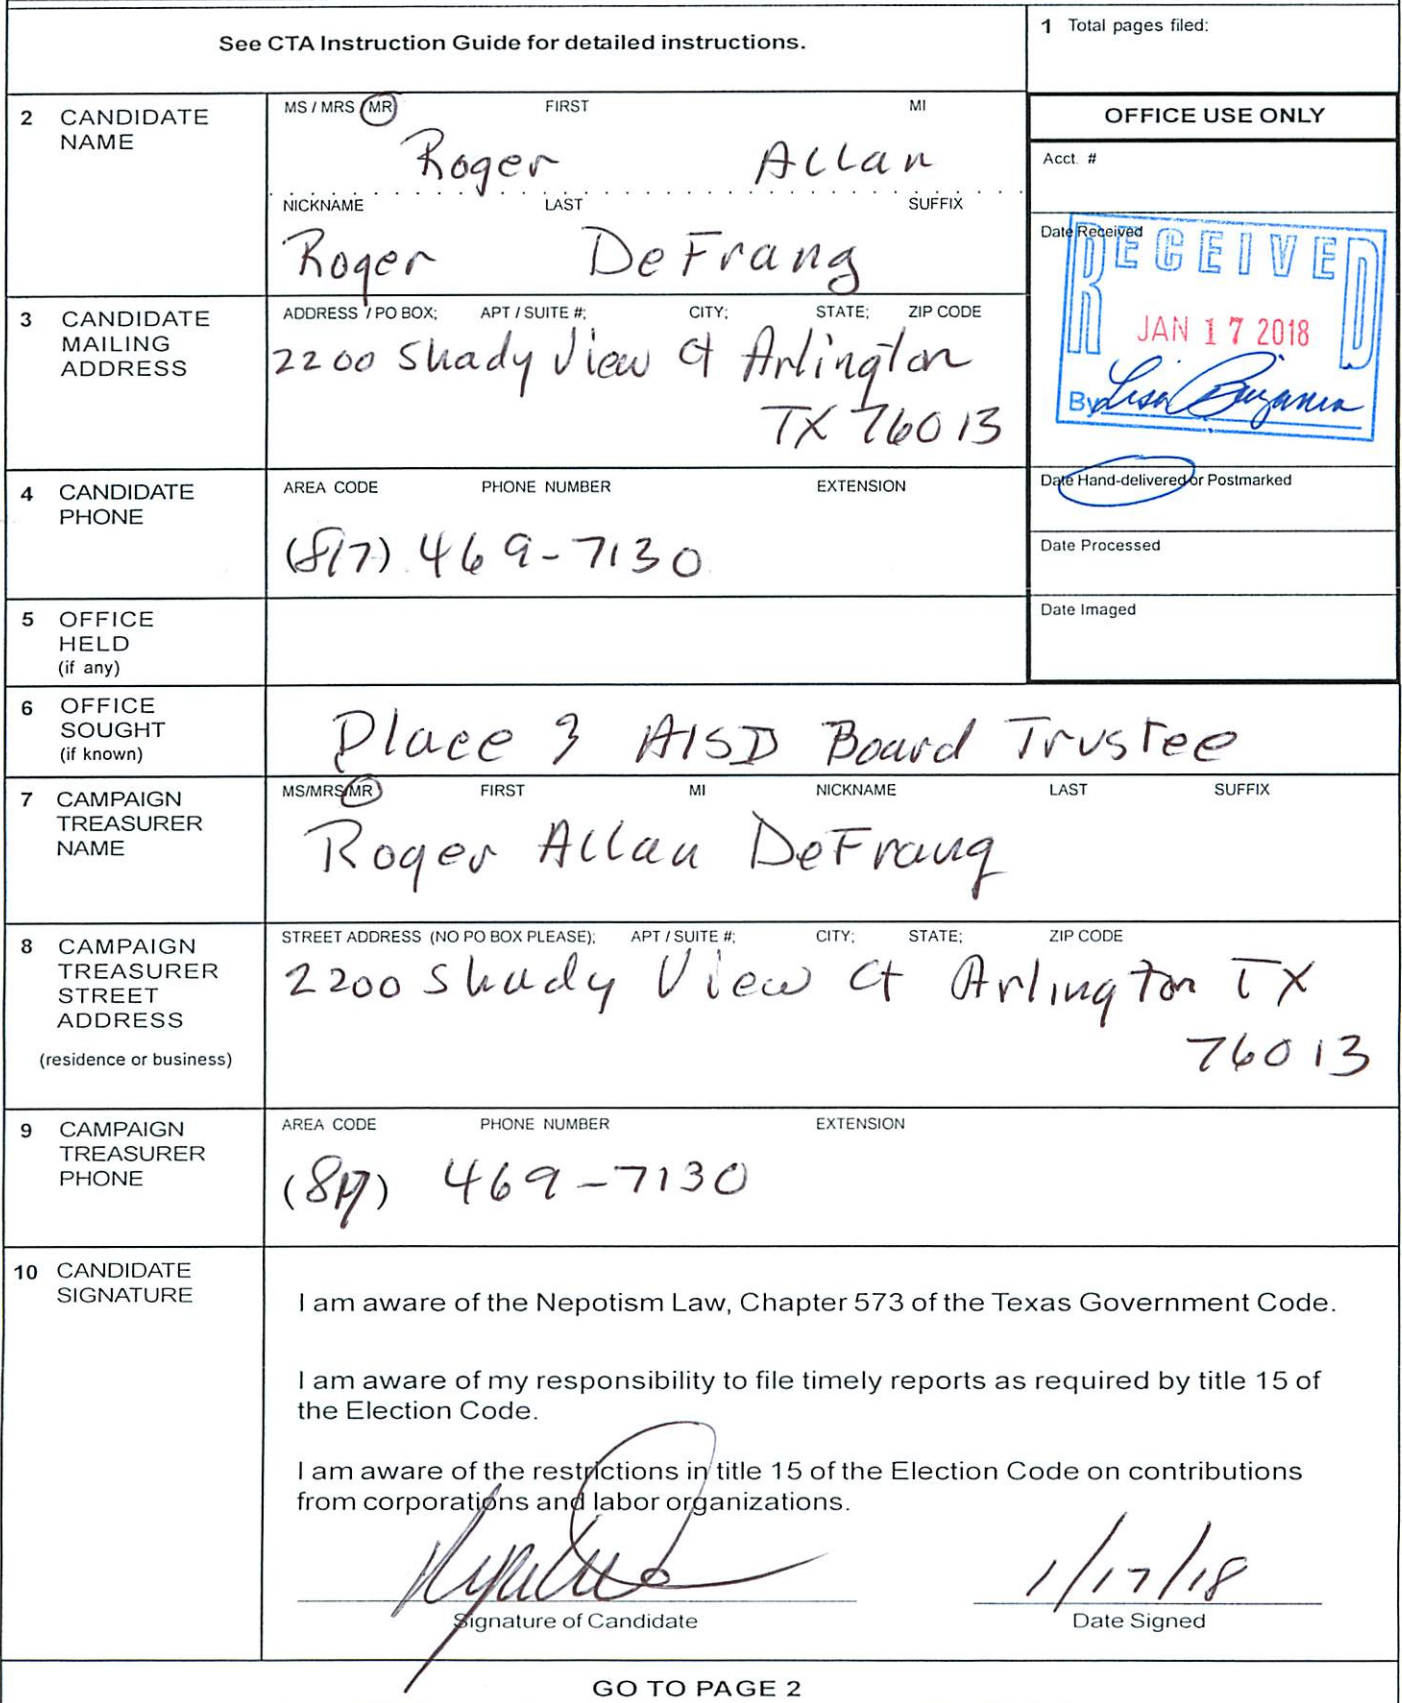 See CTA Instruction Guide for detailed instructions.
1 Total pages filed:
2 CANDIDATE NAME
MS / MRS / MR FIRST MI
Roger Allan
NICKNAME LAST SUFFIX
Roger DeFrang
OFFICE USE ONLY
Acct. #
Date Received
RECEIVED
JAN 17 2018
By Lisa Benjamin
3 CANDIDATE MAILING ADDRESS
ADDRESS / PO BOX; APT / SUITE #; CITY; STATE; ZIP CODE
2200 Shady View Ct Arlington
TX 76013
Date Hand-delivered or Postmarked
4 CANDIDATE PHONE
AREA CODE PHONE NUMBER EXTENSION
(817) 469-7130
Date Processed
Date Imaged
5 OFFICE HELD (if any)
6 OFFICE SOUGHT (if known)
Place 3 AISD Board Trustee
7 CAMPAIGN TREASURER NAME
MS/MRS/MR FIRST MI NICKNAME LAST SUFFIX
Roger Allan DeFrang
8 CAMPAIGN TREASURER STREET ADDRESS
(residence or business)
STREET ADDRESS (NO PO BOX PLEASE); APT / SUITE #; CITY; STATE; ZIP CODE
2200 Shady View Ct Arlington TX
76013
9 CAMPAIGN TREASURER PHONE
AREA CODE PHONE NUMBER EXTENSION
(817) 469-7130
10 CANDIDATE SIGNATURE
I am aware of the Nepotism Law, Chapter 573 of the Texas Government Code.
I am aware of my responsibility to file timely reports as required by title 15 of
the Election Code.
I am aware of the restrictions in title 15 of the Election Code on contributions
from corporations and labor organizations.
1/17/18
Signature of Candidate Date Signed
GO TO PAGE 2